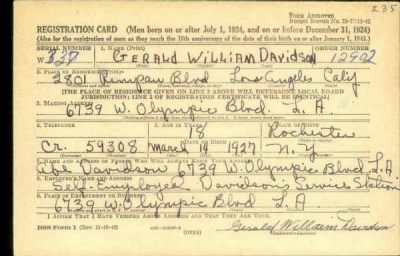 235
FORM APPROVED
REGISTRATION CARD (Men born on or after July 1, 1924, and on or before December 31, 1924)
(Also for the registration of men as they reach the 18th anniversary of the date of their birth on or after January 1, 1943.)
SERIAL NUMBER 1. NAME (Print) ORDER NUMBER
W 338 GERALD WILLIAM DAVIDSON
2. PLACE OF RESIDENCE (Print)
2801 Rimpau Blvd Los Angeles Calif
[THE PLACE OF RESIDENCE GIVEN ON LINE 2 ABOVE WILL DETERMINE LOCAL BOARD
JURISDICTION; LINE 2 OF REGISTRATION CERTIFICATE WILL BE IDENTICAL]
3. MAILING ADDRESS
6739 W. Olympic Blvd. L.A.
4. TELEPHONE 5. AGE IN YEARS 6. PLACE OF BIRTH
18 Rochester
Cr. 59308 March 19 1927 N.Y
7. NAME AND ADDRESS OF PERSON WHO WILL ALWAYS KNOW YOUR ADDRESS
Abe Davidson 6739 W. Olympic Blvd L.A
8. EMPLOYER'S NAME AND ADDRESS
Self-Employed Davidsons Service Station
9. PLACE OF EMPLOYMENT OR BUSINESS
6739 W. Olympic Blvd L.A
I AFFIRM THAT I HAVE VERIFIED ABOVE ANSWERS AND THAT THEY ARE TRUE.
DSS Form 1 Gerald William Davidson